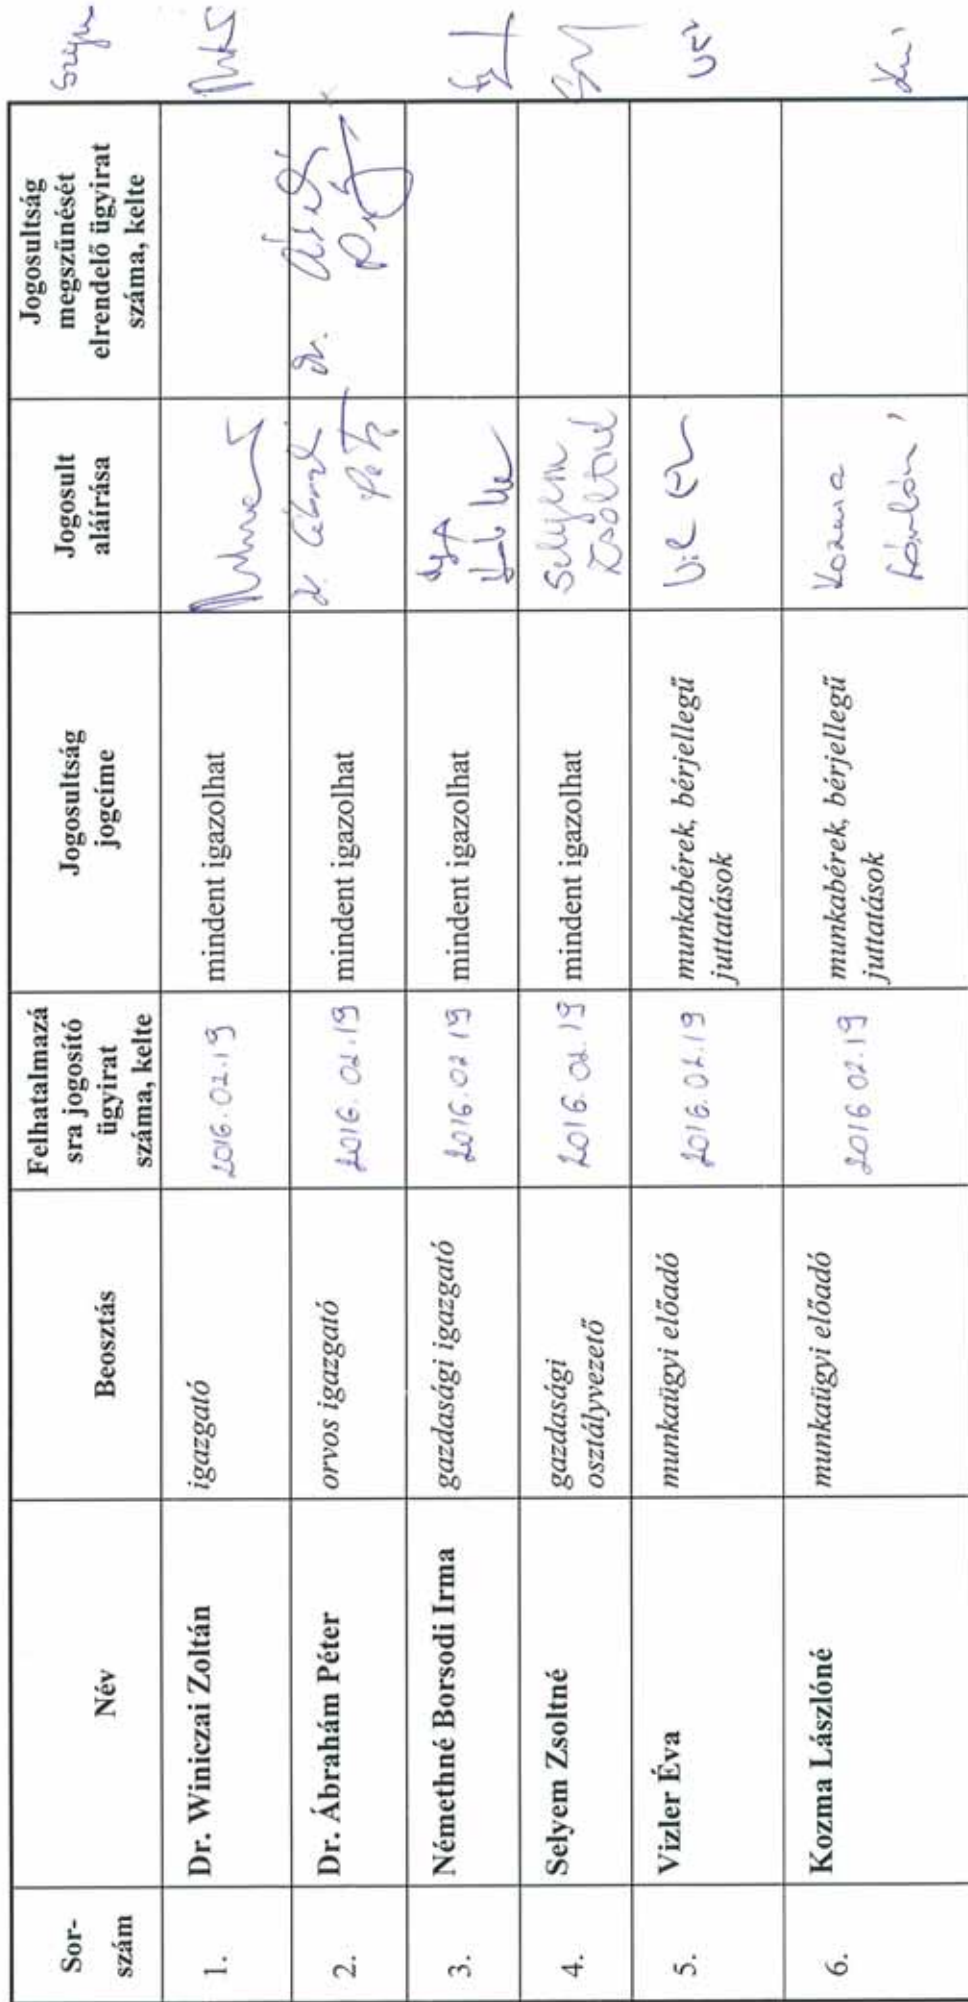 Sor-
szám
Név
Beosztás
Felhatalmazá
sra jogosító
ügyirat
száma, kelte
Jogosultság
jogcíme
Jogosult
aláírása
Jogosultság
megszűnését
elrendelő ügyirat
száma, kelte
1.
Dr. Winiczai Zoltán
igazgató
2016.02.19
mindent igazolhat
2.
Dr. Ábrahám Péter
orvos igazgató
2016.02.19
mindent igazolhat
3.
Némethné Borsodi Irma
gazdasági igazgató
2016.02 19
mindent igazolhat
4.
Selyem Zsoltné
gazdasági
osztályvezető
2016.02.19
mindent igazolhat
Selyem
Zsoltné
5.
Vizler Éva
munkaügyi előadó
2016.02.19
munkabérek, bérjellegű
juttatások
6.
Kozma Lászlóné
munkaügyi előadó
2016 02.19
munkabérek, bérjellegű
juttatások
Kozma